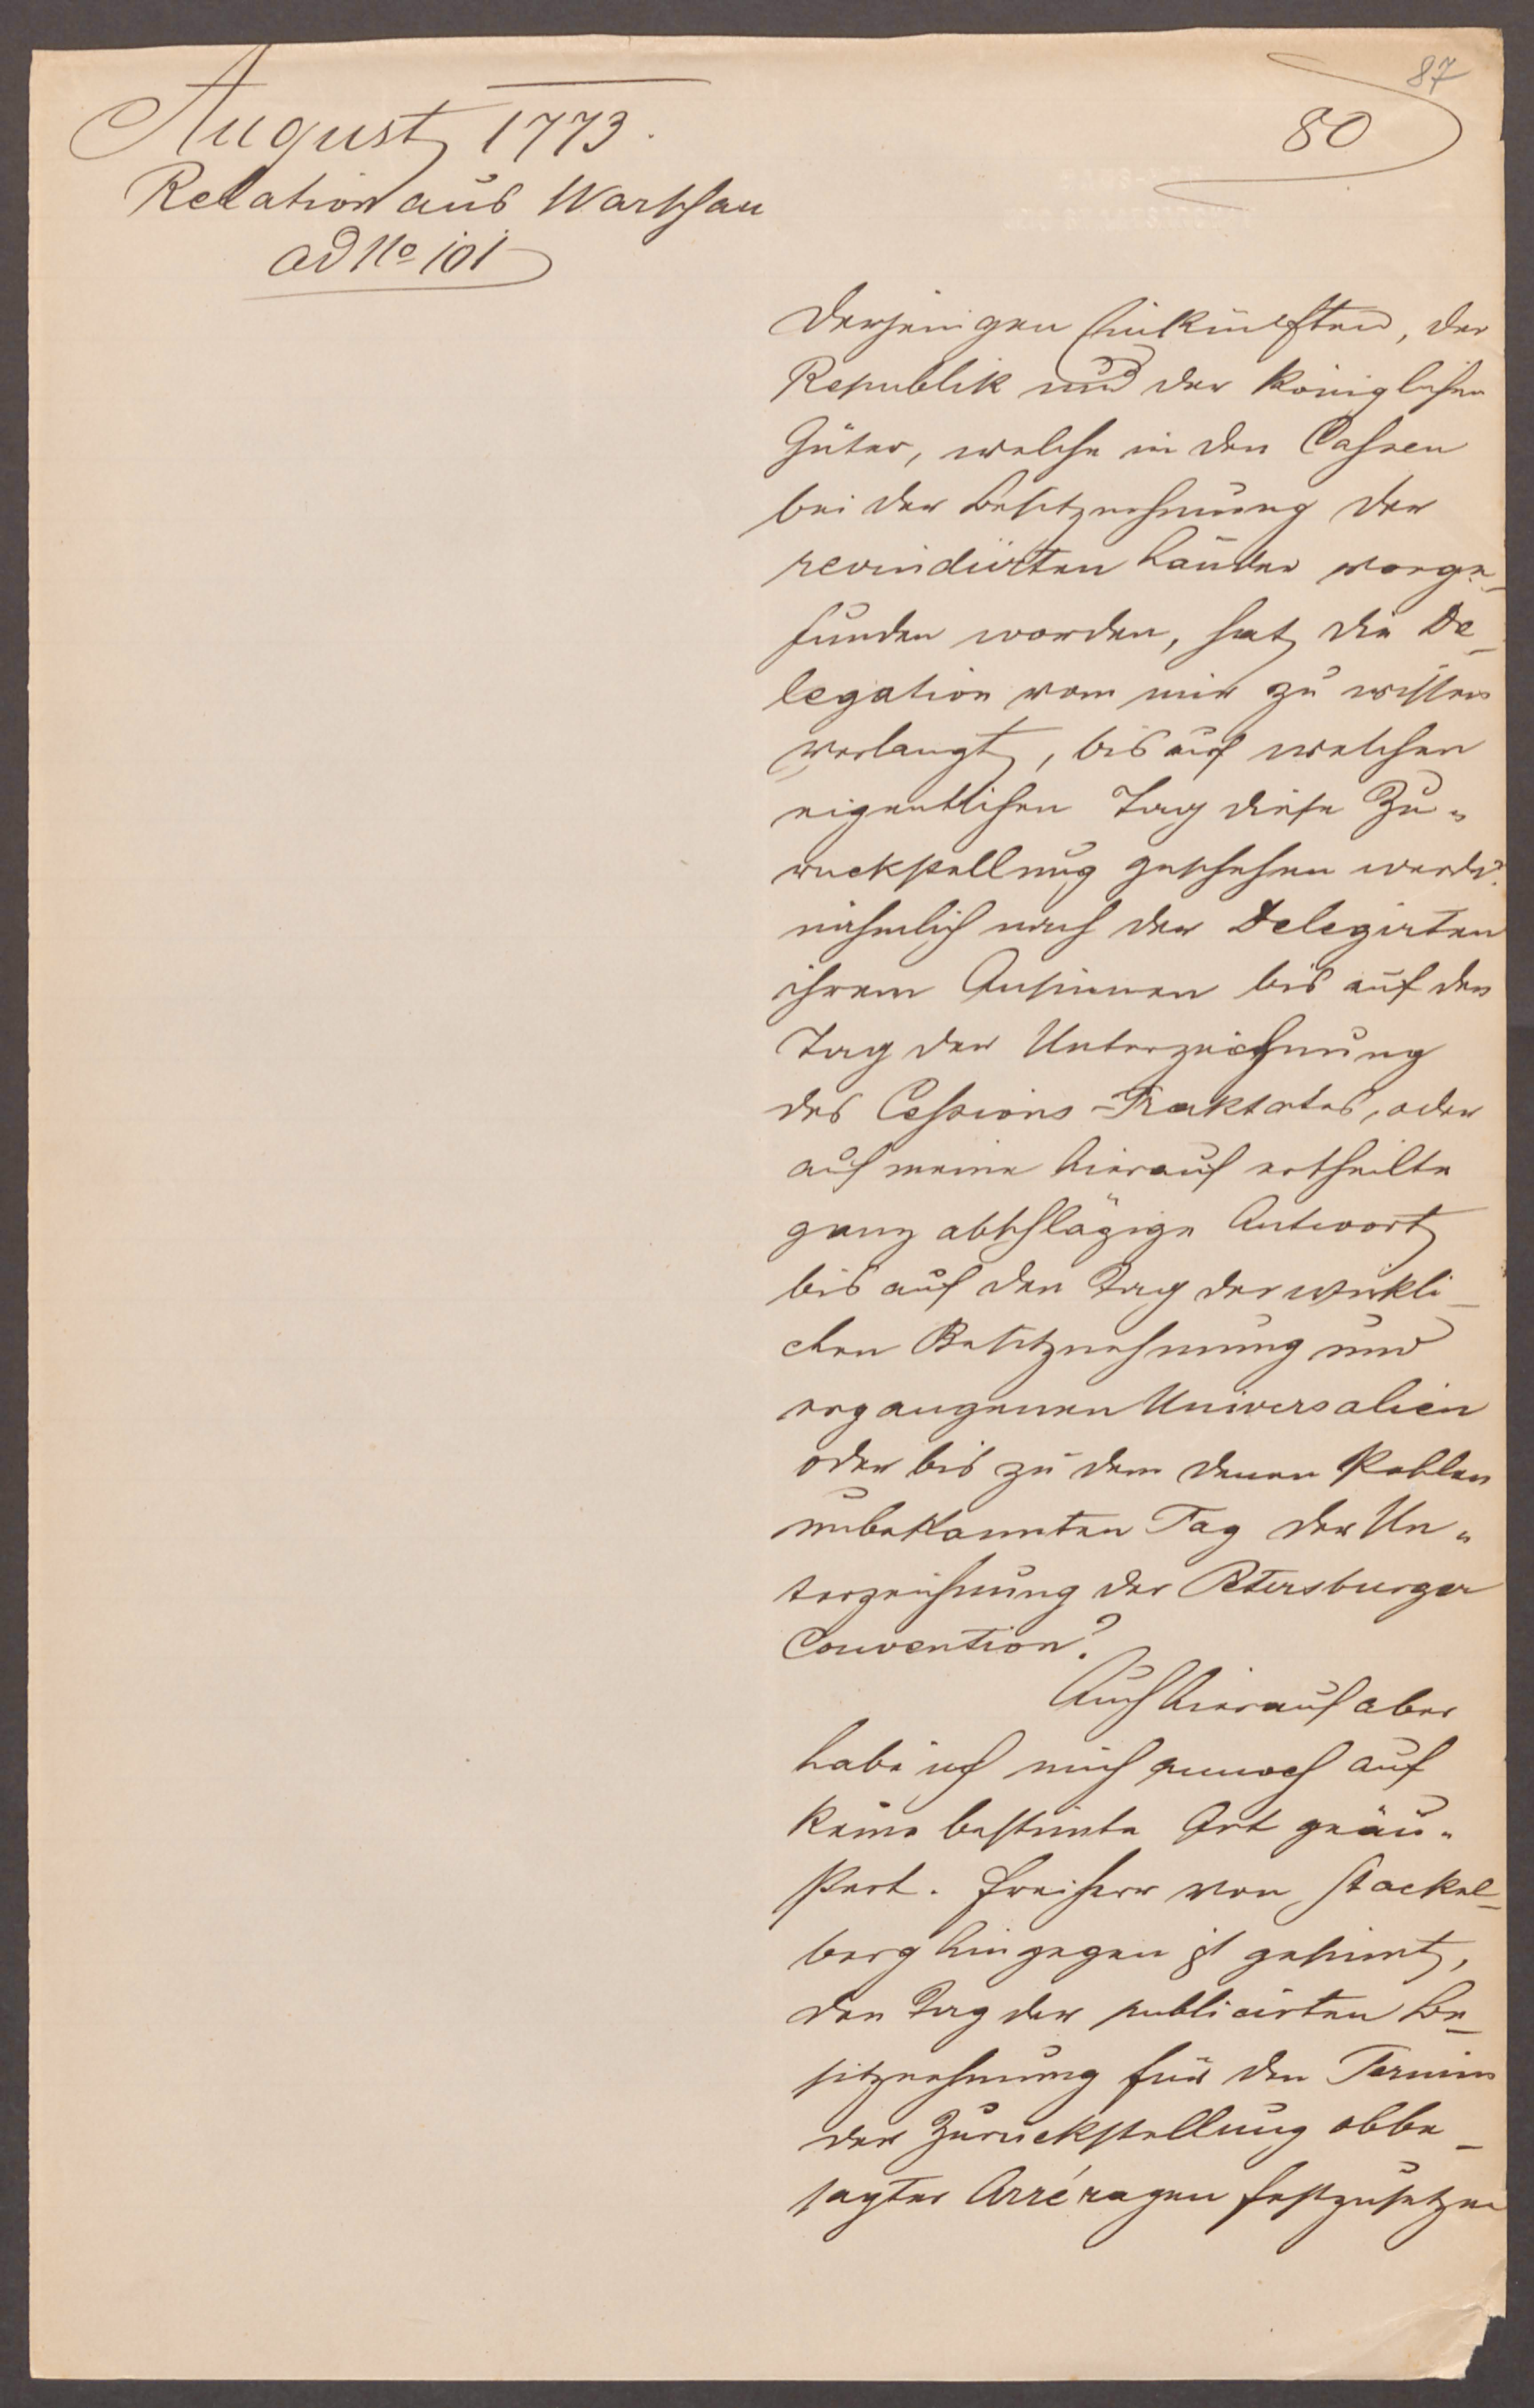 87
80
August 1773.
Relation aus Warschau
ad No 101
derjenigen Einkünften, der
Republik und der königlichen
Güter, welche in den Cassen
bei der Besitznehmung der
revindicirten Länder vorge-
funden worden, hat die De-
legation von mir zu wissen
verlangt, bis auf welchen
eigentlichen Tag diese Zu-
ruckstellung geschehen werde?
nähmlich nach der Delegirten
ihrem Ansinnen bis auf den
Tag der Unterzeichnung
des Cessions-Traktates, oder
auf meine hierauf ertheilte
ganz abschlägige Antwort
bis auf den Tag der wirkli-
chen Besitznehmung und
ergangenen Universalien
oder bis zu dem denen Pohlen
unbekannten Tag der Un-
terzeichnung der Petersburger
Convention?
Auch hierauf aber
habe ich mich annoch auf
keine bestimte Art geäu-
ßert. Freiherr von Stackel-
berg hingegen ist gesinnt,
den Tag der publicirten Be-
sitznehmung für den Termin
der Zurückstellung obbe-
sagter Arréragen festzusetzen